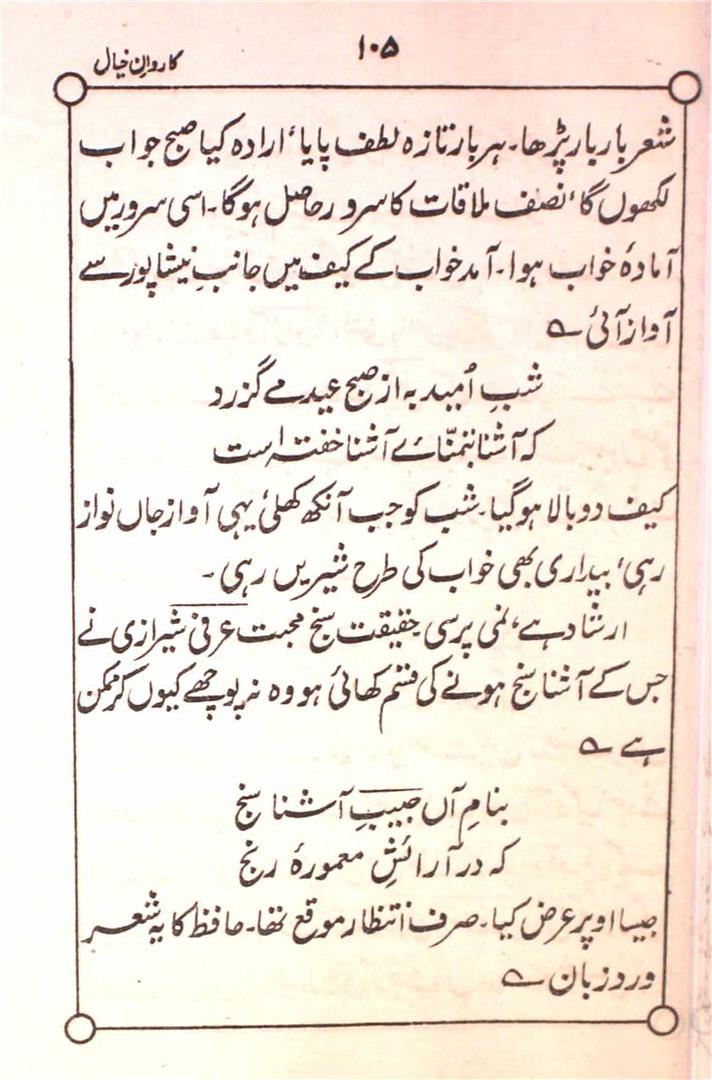 ۱۰۵
کاروانِ خیال
شعر بار بار پڑھا۔ ہر بار تازہ لطف پایا، ارادہ کیا صبح جواب
لکھوں گا، نصف ملاقات کا سرور حاصل ہوگا۔ اسی سرور میں
آمادۂ خواب ہوا۔ آمد خواب کے کیف میں جانبِ نیشاپور سے
آواز آئی ؎
شبِ اُمید بہ از صبح عید مے گزرد
کہ آشنا بتمنّائے آشنا خفتہ است
کیف دوبالا ہوگیا۔ شب کو جب آنکھ کھلی یہی آواز جاں نواز
رہی، بیداری بھی خواب کی طرح شیریں رہی۔
ارشاد ہے، نمی پرسی حقیقت سنج محبت عرفی شیرازی نے
جس کے آشنا سنج ہونے کی قسم کھائی ہو وہ نہ پوچھے کیوں کر ممکن
ہے ؎
بنامِ آں حبیبِ آشنا سنج
کہ در آرائشِ معمورۂ رنج
جیسا اوپر عرض کیا۔ صرف انتظار موقع تھا۔ حافظ کا یہ شعر
ورد زبان ؎